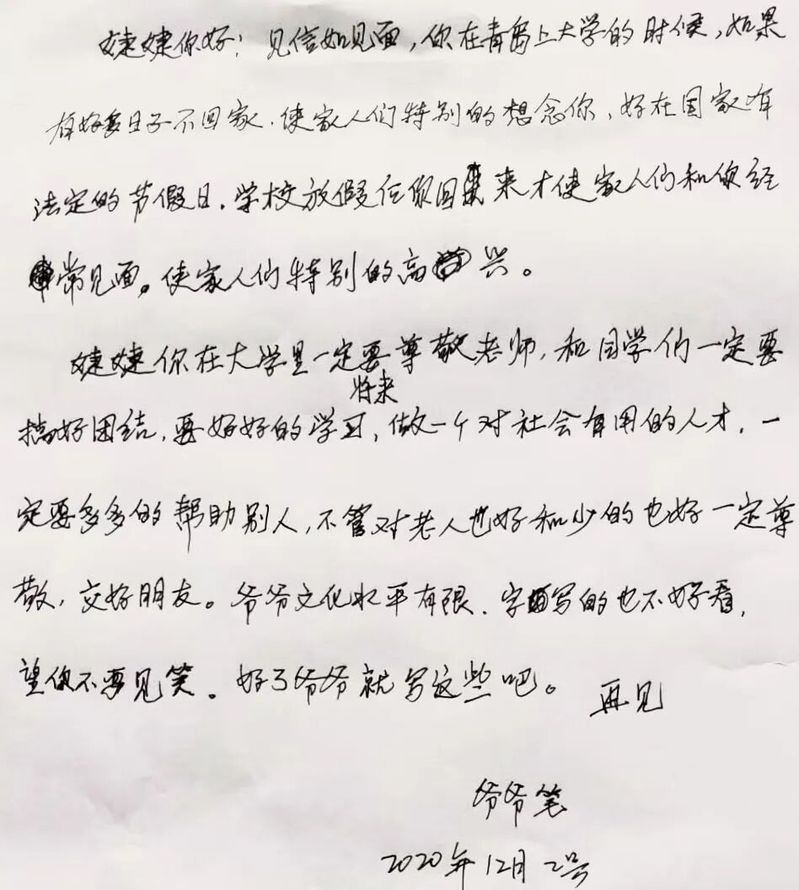 婕婕你好！见信如见面，你在青岛上大学的时候，如果
有好多日子不回家，使家人们特别的想念你，好在国家有
法定的节假日，学校放假让你回来才使家人们和你经
常见面。使家人们特别的高兴。
婕婕你在大学里一定要尊敬老师，和同学们一定要
将来
搞好团结，要好好的学习，做一个对社会有用的人才，一
定要多多的帮助别人，不管对老人也好和少的也好一定尊
敬，交好朋友。爷爷文化水平有限，字写的也不好看，
望你不要见笑。好了爷爷就写这些吧。再见
爷爷笔
2020年12月2号